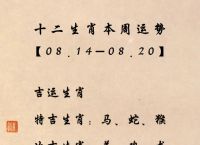 十二生肖本周运势
【08.14—08.20】
吉运生肖
特吉生肖：马、蛇、猴